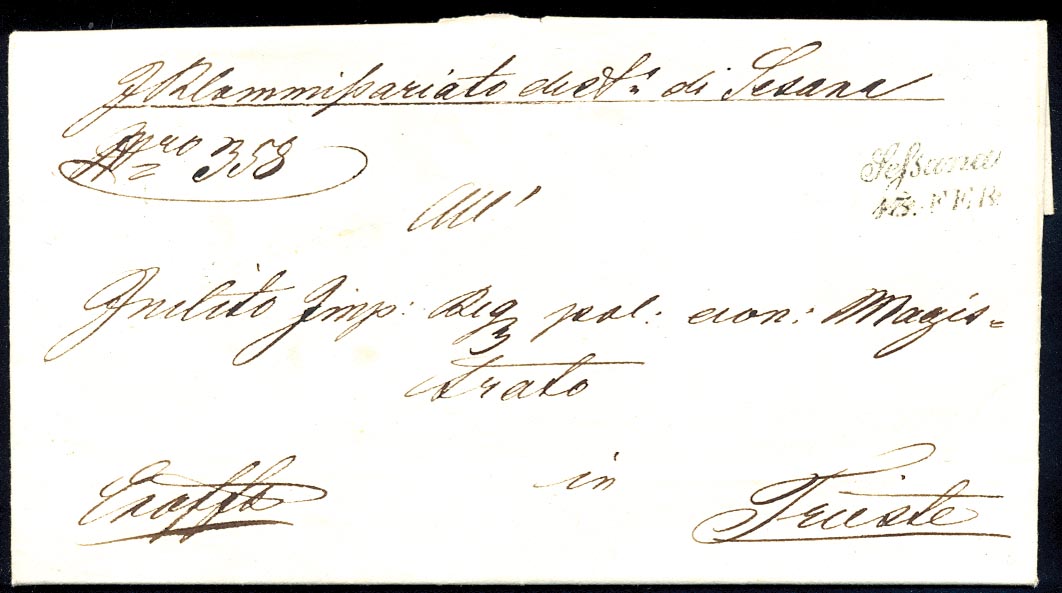 I R Commißariato distr. di Sesana
Nro 358
Seßana
FEB.
All'
Inclito Imp: Reg pol: econ: Magis=
trato
Exoffo in Trieste